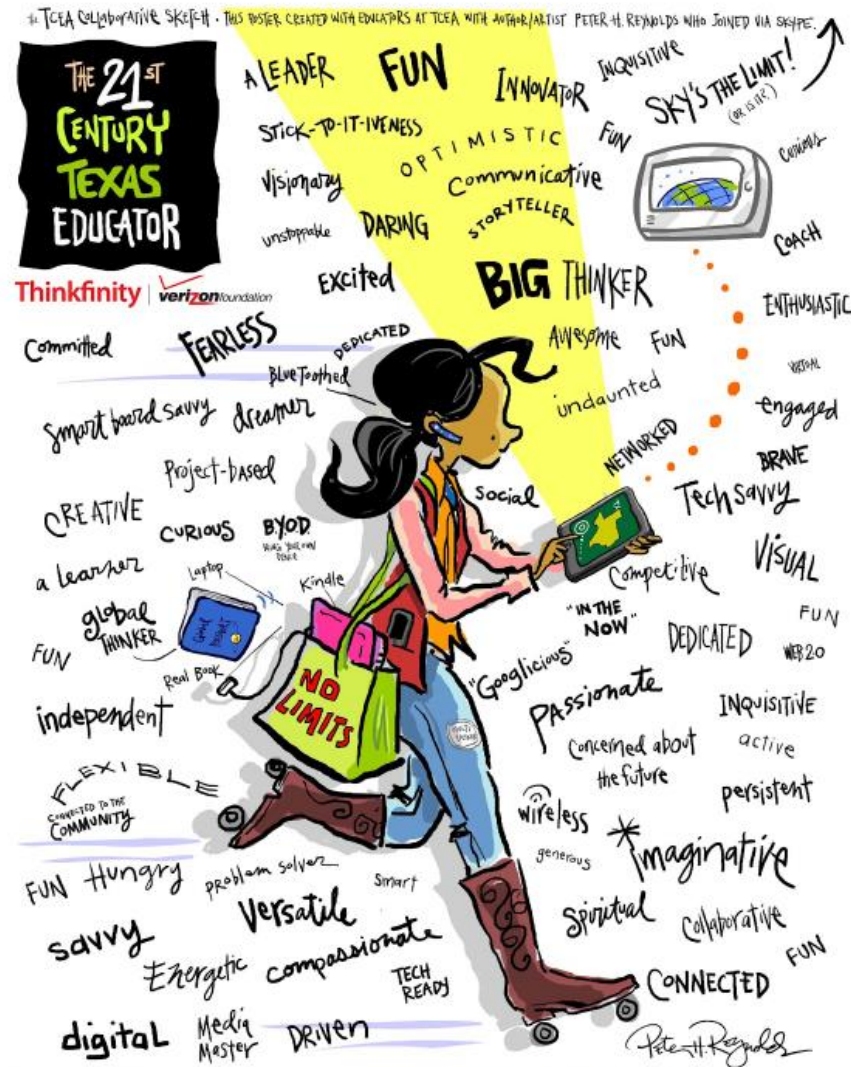 TCEA COLLABORATIVE SKETCH • THIS POSTER CREATED WITH EDUCATORS AT TCEA WITH AUTHOR/ARTIST PETER H. REYNOLDS WHO JOINED VIA SKYPE.
THE 21ST
CENTURY
TEXAS
EDUCATOR
Thinkfinity | verizonfoundation
A LEADER
FUN
INNOVATOR
INQUISITIVE
SKY'S THE LIMIT!
(OR IS IT?)
STICK-TO-IT-IVENESS
OPTIMISTIC
FUN
Curious
Visionary
Communicative
STORYTELLER
unstoppable
DARING
COACH
Excited
BIG THINKER
ENTHUSIASTIC
Committed
FEARLESS
DEDICATED
AWESOME
FUN
VIRTUAL
BlueToothed
undaunted
engaged
Smart board savvy
dreamer
NETWORKED
BRAVE
Project-based
SOCIAL
Tech savvy
CREATIVE
CURIOUS
B.Y.O.D.
BRING YOUR OWN
DEVICE
VISUAL
a learner
Laptop
Kindle
Competitive
global
THINKER
"IN THE
NOW"
DEDICATED
FUN
WEB 2.0
FUN
Real Book
"Googlicious"
NO
LIMITS
PASSIONATE
INQUISITIVE
independent
Concerned about
the future
active
FLEXIBLE
CONNECTED TO THE
COMMUNITY
wireless
persistent
generous
*Imaginative
FUN
Hungry
problem solver
Smart
Versatile
Spiritual
Collaborative
savvy
Energetic
compassionate
TECH
READY
FUN
CONNECTED
digital
Media
Master
DRIVEN
Peter H. Reynolds